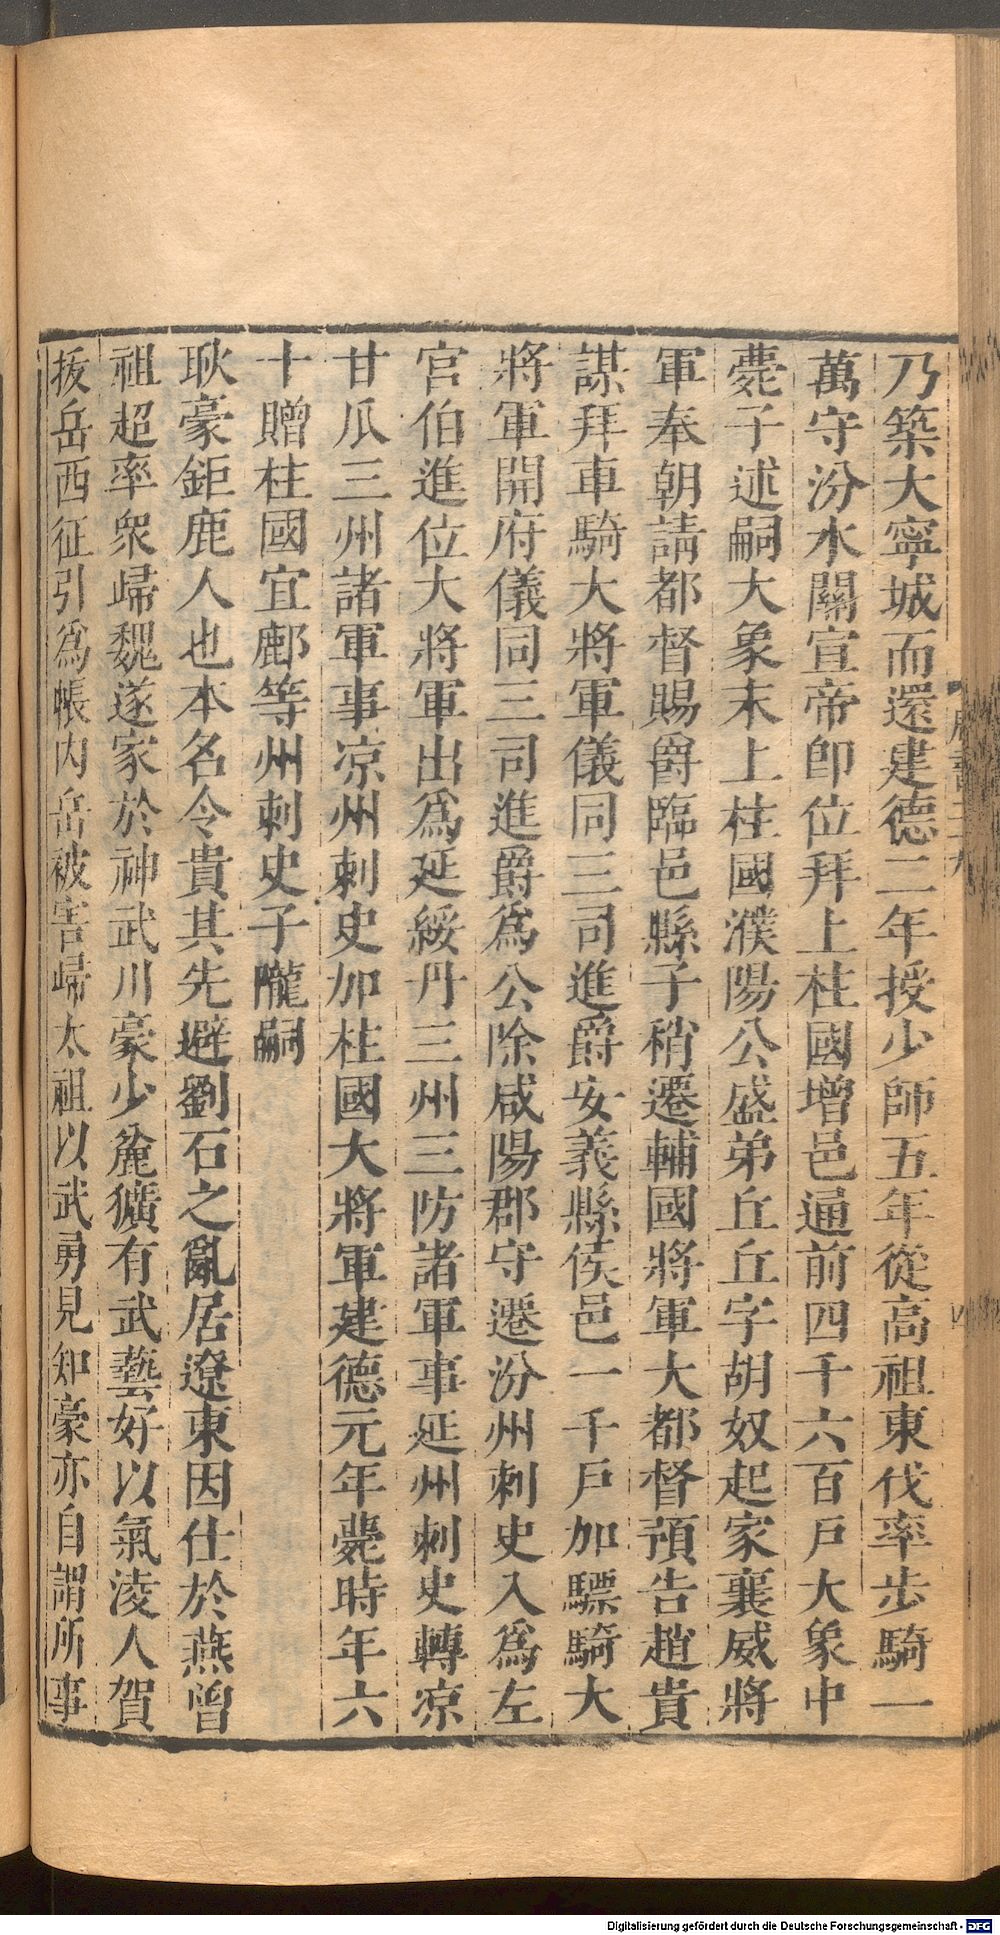 乃築大寧城而還建德二年授少師五年從高祖東伐率步騎一
萬守汾水關宣帝即位拜上柱國增邑通前四千六百戶大象中
薨子述嗣大象末上柱國濮陽公盛弟丘丘字胡奴起家襄威將
軍奉朝請都督賜爵臨邑縣子稍遷輔國將軍大都督預告趙貴
謀拜車騎大將軍儀同三司進爵安義縣侯邑一千戶加驃騎大
將軍開府儀同三司進爵爲公除咸陽郡守遷汾州刺史入爲左
宮伯進位大將軍出爲延綏丹三州三防諸軍事延州刺史轉凉
甘瓜三州諸軍事凉州刺史加柱國大將軍建德元年薨時年六
十贈柱國宜鄜等州刺史子隴嗣
耿豪鉅鹿人也本名令貴其先避劉石之亂居遼東因仕於燕曾
祖超率衆歸魏遂家於神武川豪少麄獷有武藝好以氣淩人賀
拔岳西征引爲帳內岳被害歸太祖以武勇見知豪亦自謂所事
Digitalisierung gefördert durch die Deutsche Forschungsgemeinschaft - DFG